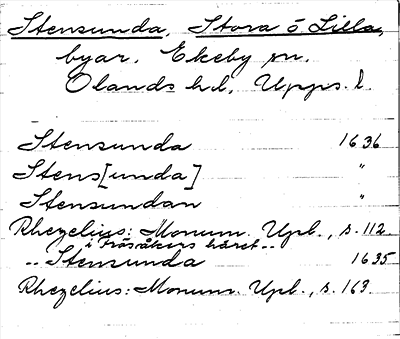 Stensunda, Stora o Lilla,
byar. Ekeby sn.
Olands hd, Upps. l.
Stensunda 1636
Stens[unda] "
Stensundan "
Rhezelius: Monum. Upl., s. 112.
i Frösåkers häret..
.. Stensunda 1635
Rhezelius: Monum. Upl., s. 163.